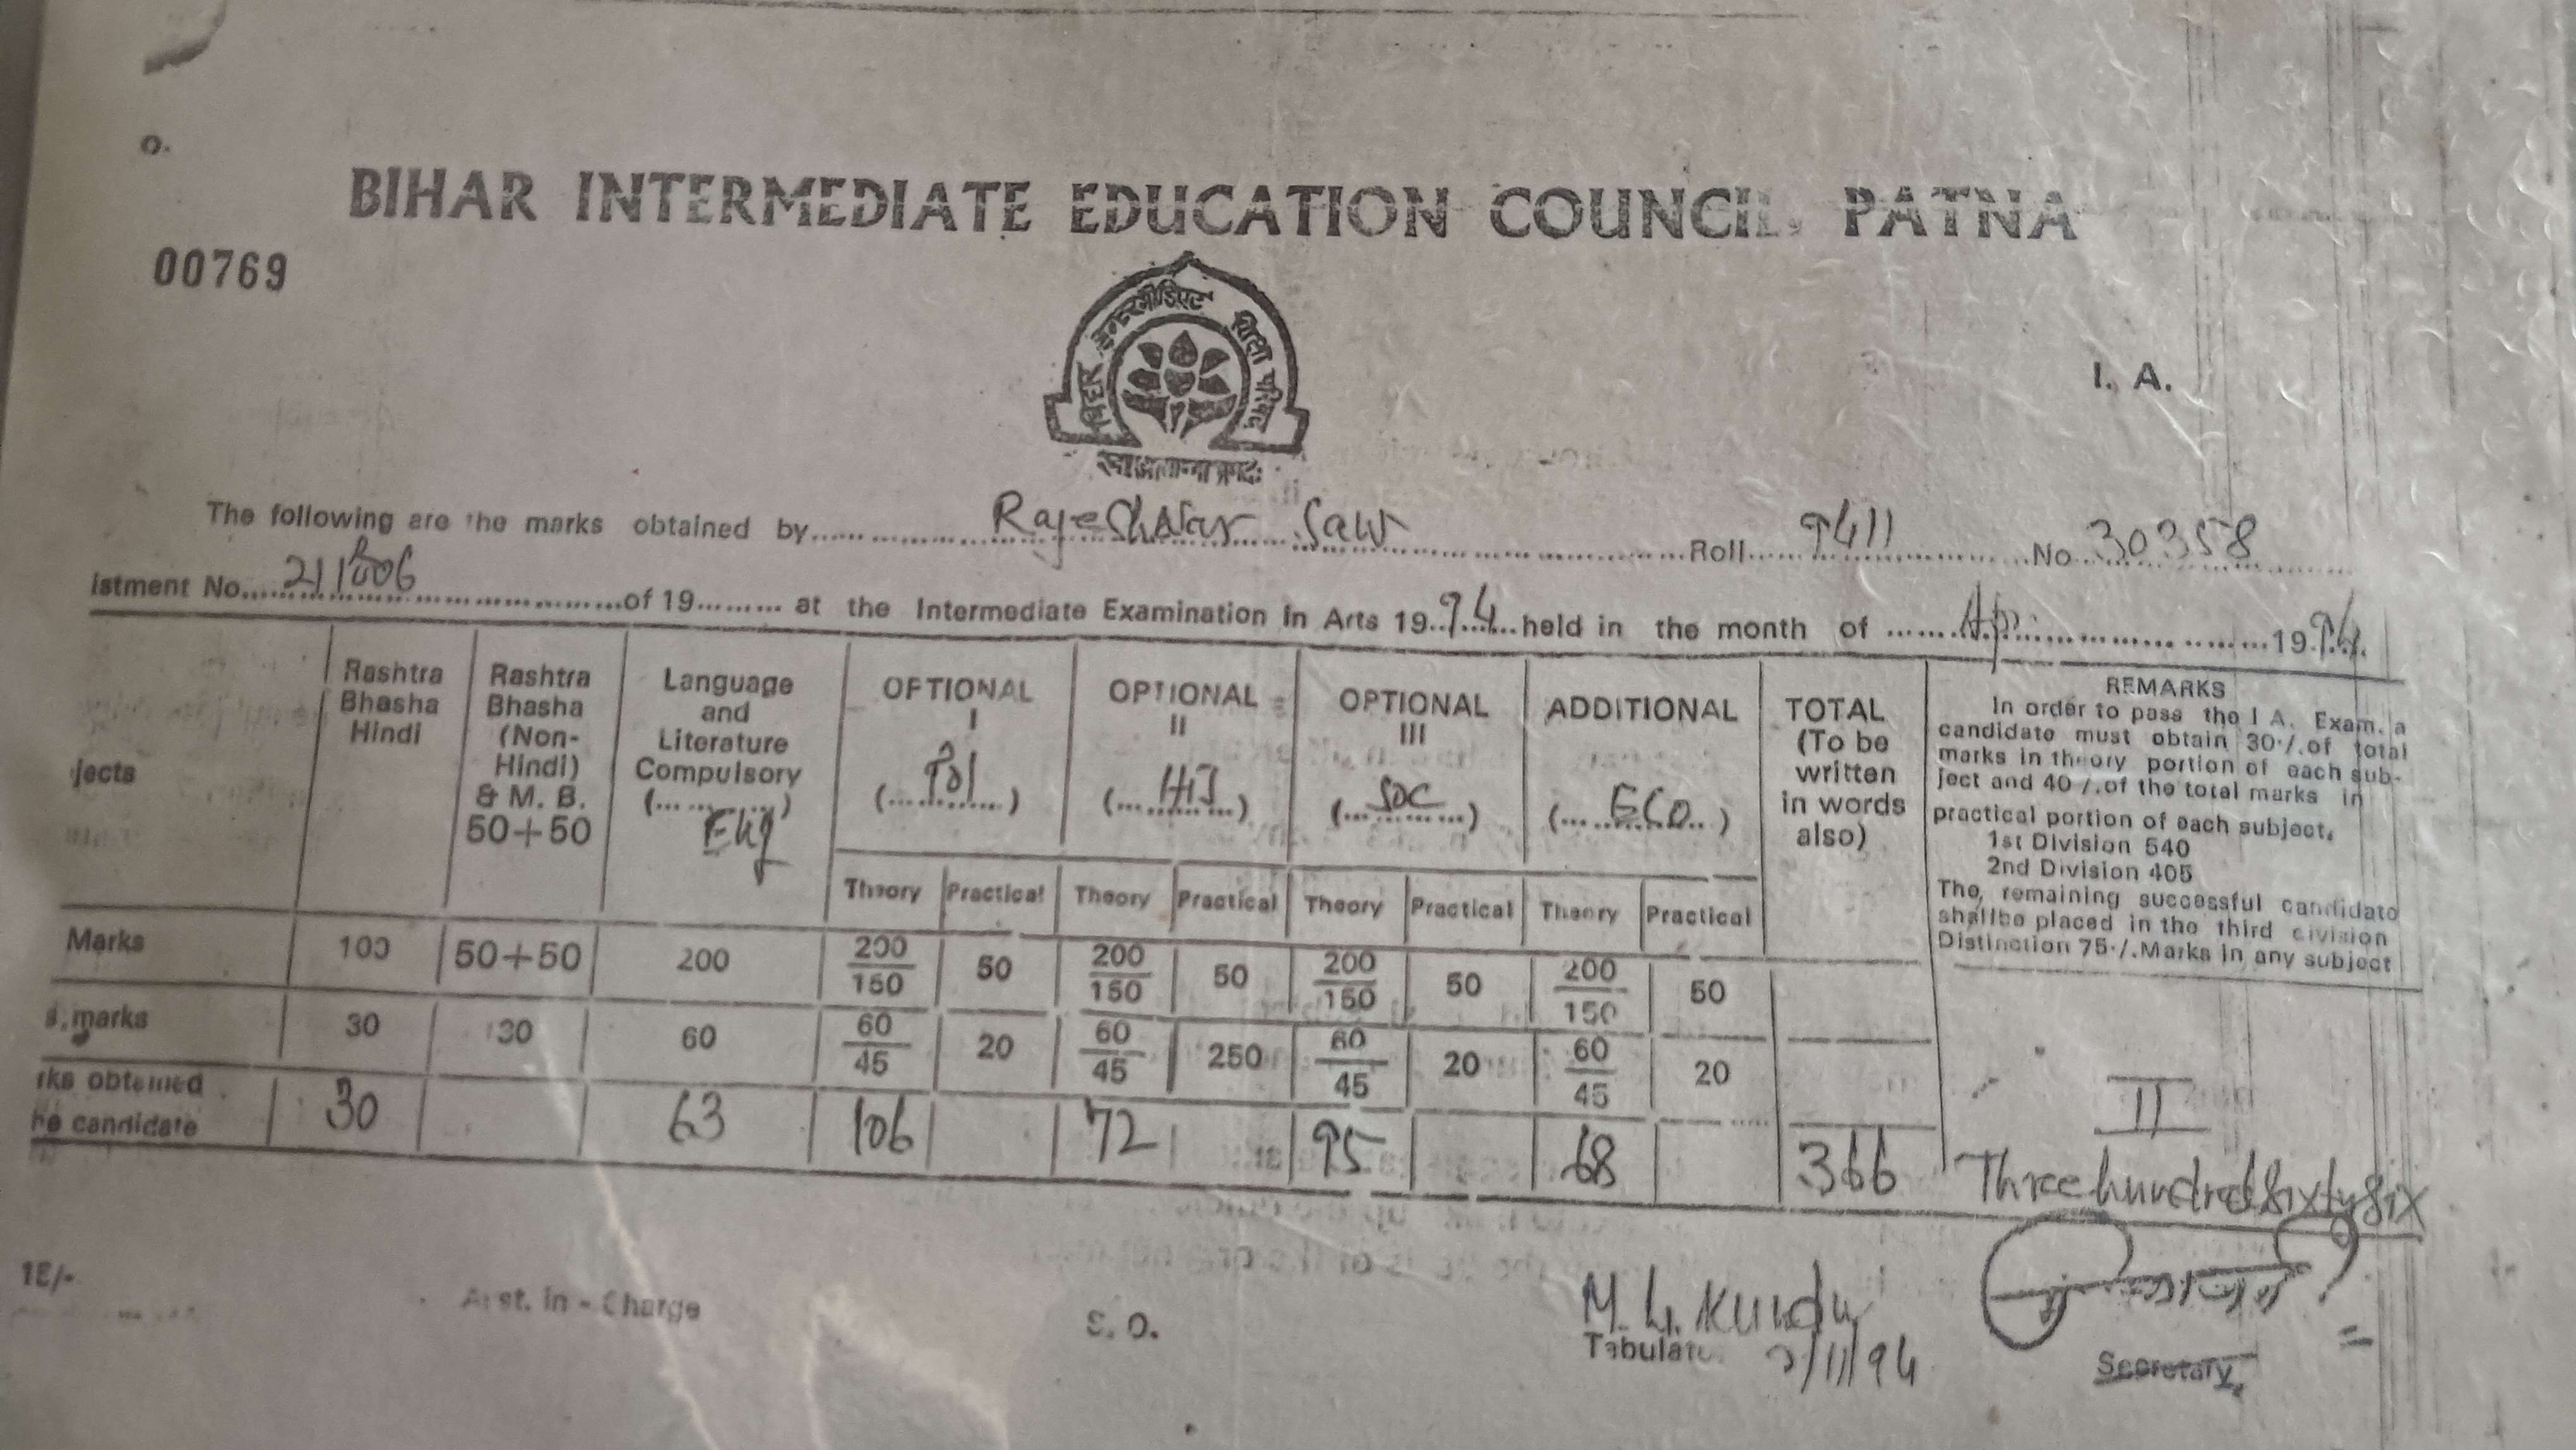 O.
BIHAR INTERMEDIATE EDUCATION COUNCIL, PATNA
00769
बिहार इन्टरमीडिएट शिक्षा परिषद
I. A.
The following are the marks obtained by Rajeshwar Saw Roll 9411 No. 30358
istment No. 211806 of 19 at the Intermediate Examination in Arts 1994 held in the month of Ap 1994
jects
Rashtra Bhasha Hindi
Rashtra Bhasha (Non-Hindi) & M. B. 50+50
Language and Literature Compulsory ( ) Eng
OPTIONAL I (Pol)
OPTIONAL II (HIS)
OPTIONAL III (SOC)
ADDITIONAL (ECO)
TOTAL (To be written in words also)
REMARKS
In order to pass the I A. Exam. a
candidate must obtain 30% of total
marks in theory portion of each sub-
ject and 40% of the total marks in
practical portion of each subject.
1st Division 540
2nd Division 405
The, remaining successful candidate
shall be placed in the third division
Distinction 75% Marks in any subject
Theory Practical Theory Practical Theory Practical Theory Practical
Marks 100 50+50 200 200/150 50 200/150 50 200/150 50 200/150 50
marks 30 30 60 60/45 20 60/45 250 60/45 20 60/45 20
rks obtained
he candidate 30 63 106 72 95 68 366 II
Three hundred sixty six
1E/-
Asst. in - Charge
S. O.
M. L. Kundu
Tabulator 2/11/94
Secretary